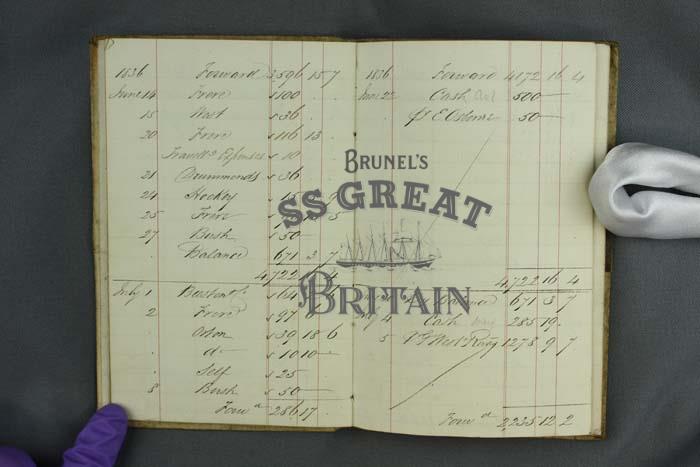 1836 Forward 3596 15 7
June 14 Frere 100
15 West 36
20 Frere 116 13
Travell^g Expenses 10
21 Drummonds 36
24 Hockly 15
25 Frere 5
27 Bush 50
Balance 671 3 7
4722 16 4
July 1 64
2 Frere 97
Orton 39 18 6
d^o 10 10
Self 25
8 Bush 50
Forw^d 286 17
1836 Forward 4172 16 4
June 22 Cash 500
50
4722 16 4
Balance 671 3 7
4 Cash 285 19
5 1278 9 7
Forw^d 2235 12 2
BRUNEL'S
SS GREAT
BRITAIN